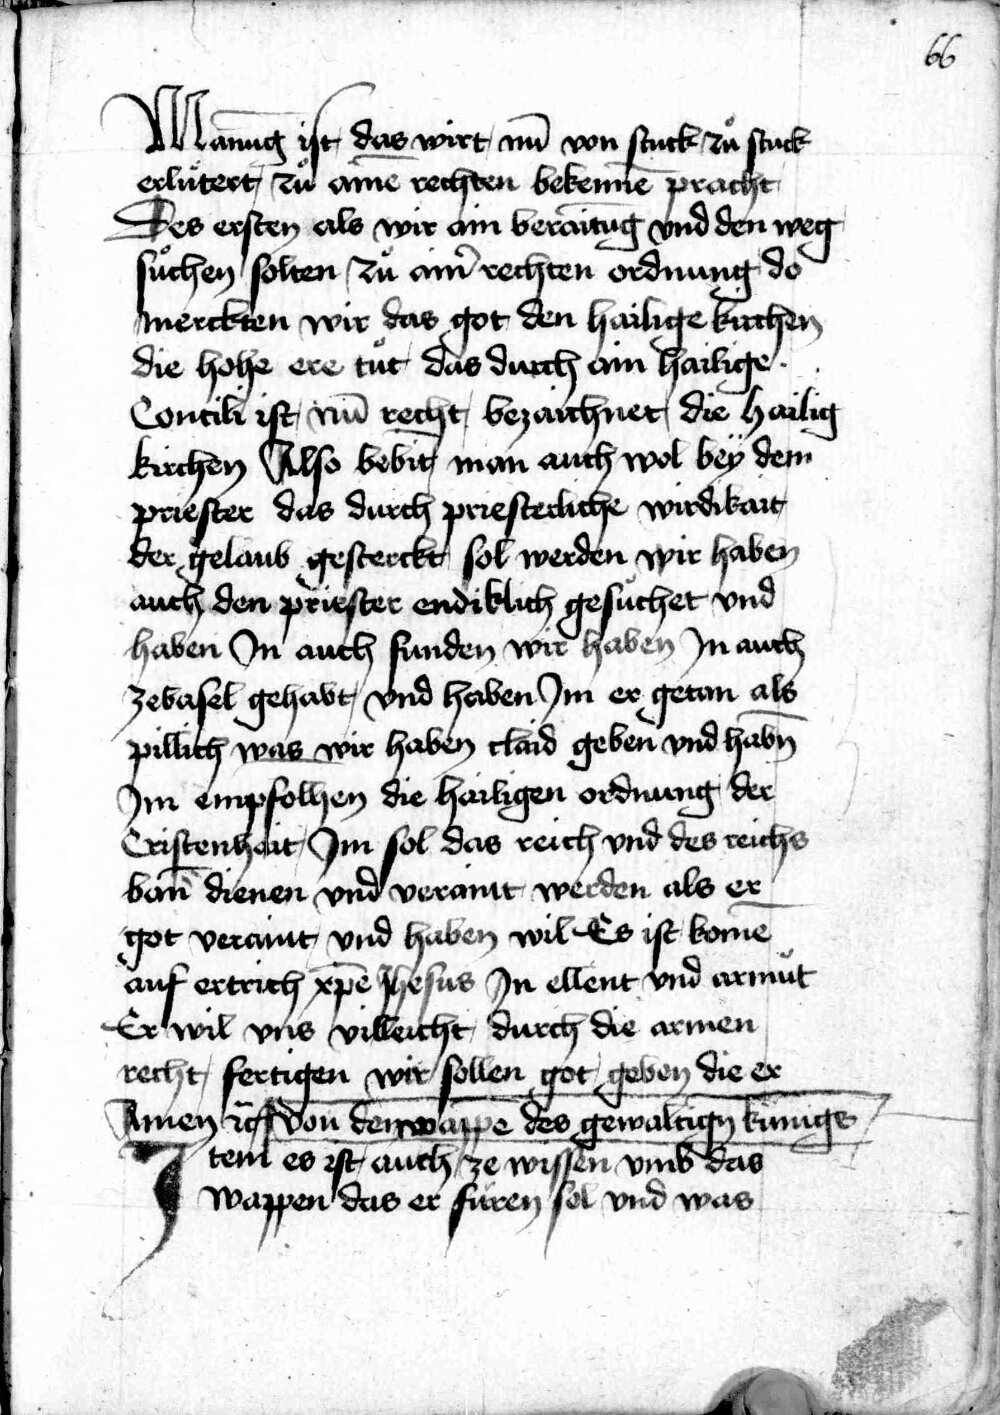 66
Manūg ist das wirt nū von stuck zů stuck
erlütert zů aine rechten bekenne pracht
Des ersten als wir ain beraitūg vnd den weg
sůchen solten zů aīr rechten ordnung do
merckten wir das got den hailige kirchen
die hohe ere tůt das durch ain hailige
Concili ist nū recht bezaichnet die hailig
kirchen Also man auch wol beÿ dem
priester das durch priesterliche wirdikait
der gelaub gesterckt sol werden wir haben
auch den priester endiklich gesůchet vnd
haben In auch funden wir haben In auch
zebasel gehabt vnd haben Im er getan als
pillich was wir haben claid geben vnd habn̄
Im empfolhen die hailigen ordnung der
Cristenhait Im sol das reich vnd des reichs
ban̄ dienen vnd veraint werden als er
got veraint vnd haben wil Es ist kome
auf ertrich xp̄e Jhesus In ellent vnd armůt
Er wil vns villeicht durch die armen
recht fertigen wir sollen got geben die er
Amen Von dem wappē des gewaltign künigs
Item es ist auch ze wissen vmb das
wappen das er füren sol vnd was